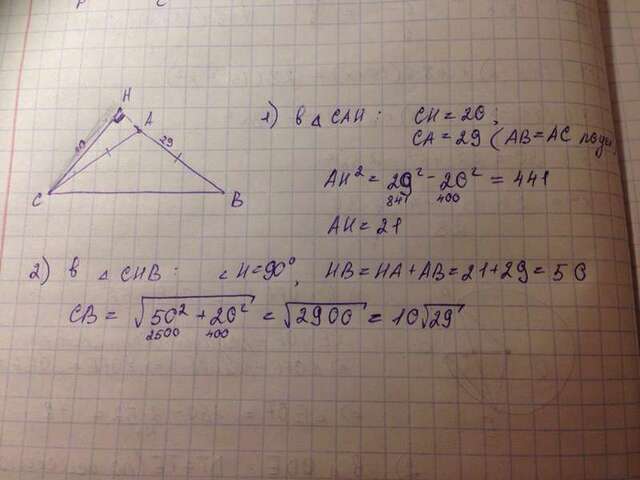 H
A
20
29
C
B
1) в △ CAH : CH = 20 ;
CA = 29 ( AB = AC
AH² = 29² - 20² = 441
841 400
AH = 21
2) в △ CHB : ∠ H = 90°, HB = HA + AB = 21 + 29 = 50
CB = √50² + 20² = √2900 = 10√29
2500 400